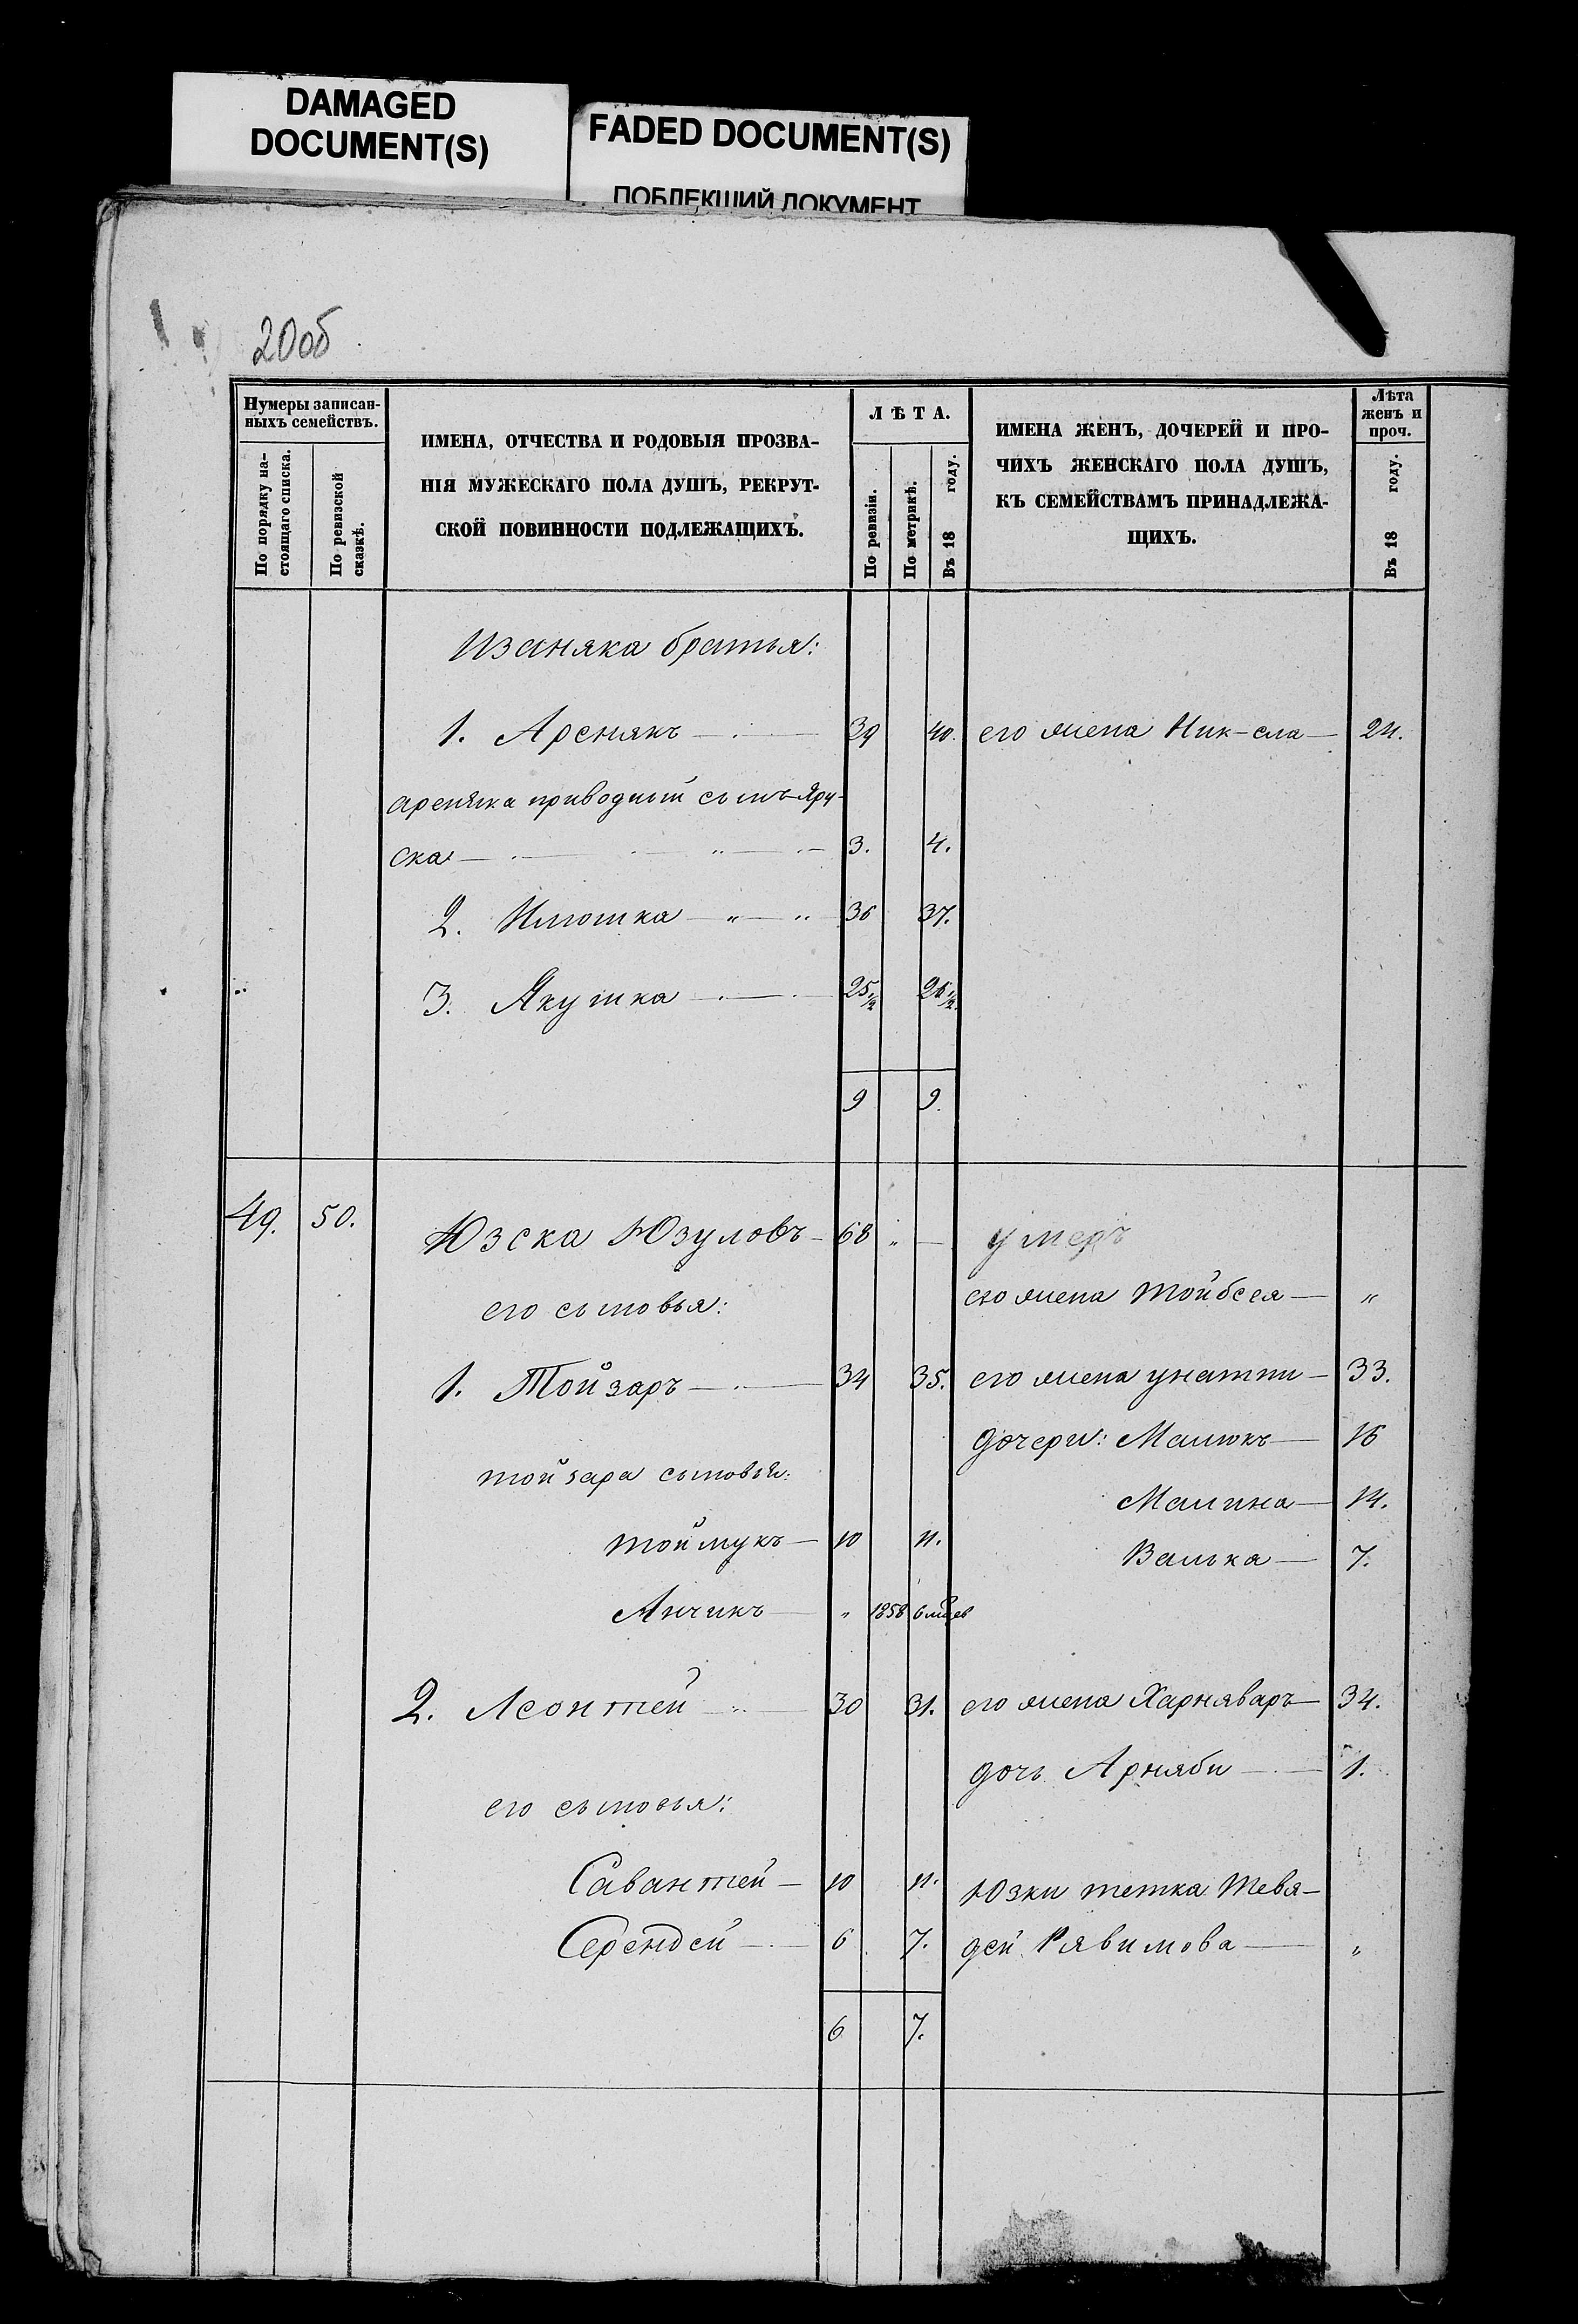 DAMAGED
DOCUMENT(S)
FADED DOCUMENT(S)
ПОБЛЕКШИЙ ДОКУМЕНТ
20об
Нумеры записан-
ныхъ семействъ.
По порядку на-
стоящаго списка.
По ревизской
сказкѣ.
ИМЕНА, ОТЧЕСТВА И РОДОВЫЯ ПРОЗВА-
НІЯ МУЖЕСКАГО ПОЛА ДУШЪ, РЕКРУТ-
СКОЙ ПОВИННОСТИ ПОДЛЕЖАЩИХЪ.
ЛѢТА.
По ревизіи.
По метрикѣ.
Въ 18 году.
ИМЕНА ЖЕНЪ, ДОЧЕРЕЙ И ПРО-
ЧИХЪ ЖЕНСКАГО ПОЛА ДУШЪ,
КЪ СЕМЕЙСТВАМЪ ПРИНАДЛЕЖА-
ЩИХЪ.
Лѣта
женъ и
проч.
Въ 18 году.
Изаняка братья:
1. Аренякъ — 39 40. его жена Ник-сла — 24.
Ареняка приводный сынъ Яри-
ска — 3. 4.
2. Илюшка — 36 37.
3. Якушка — 25 1/2 26 1/2.
9 9.
49. 50. Юзска Юзуловъ — 68 " — умеръ
его сыновья: его жена Тойбсея — "
1. Тойзаръ — 34 35. его жена Унатти — 33.
дочери: Малюкъ — 16
Тойзара сыновья:
Малина — 14.
Тоймукъ — 10 11.
Валька — 7.
Анчикъ — " 1858 6 мѣцев
2. Леонтей — 30 31. его жена Харняваръ — 34.
дочь Арняби — 1.
его сыновья:
Савантей — 10 11. Юзки тетка Тевя-
Серендей — 6 7. дей Рявимова — "
6 7.